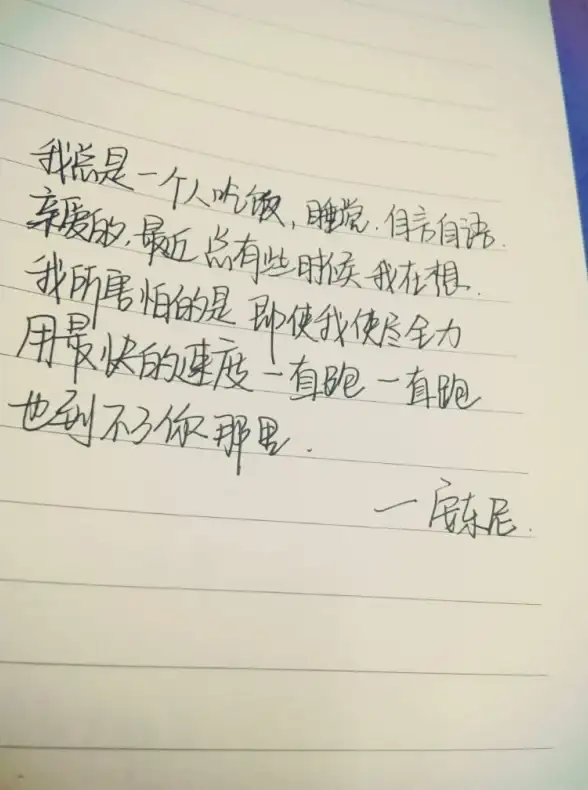 我总是一个人吃饭,睡觉.自言自语.
亲爱的,最近 总有些时候 我在想.
我所害怕的是 即使我使尽全力
用最快的速度 一直跑 一直跑
也到不了你 那里.
一安东尼.